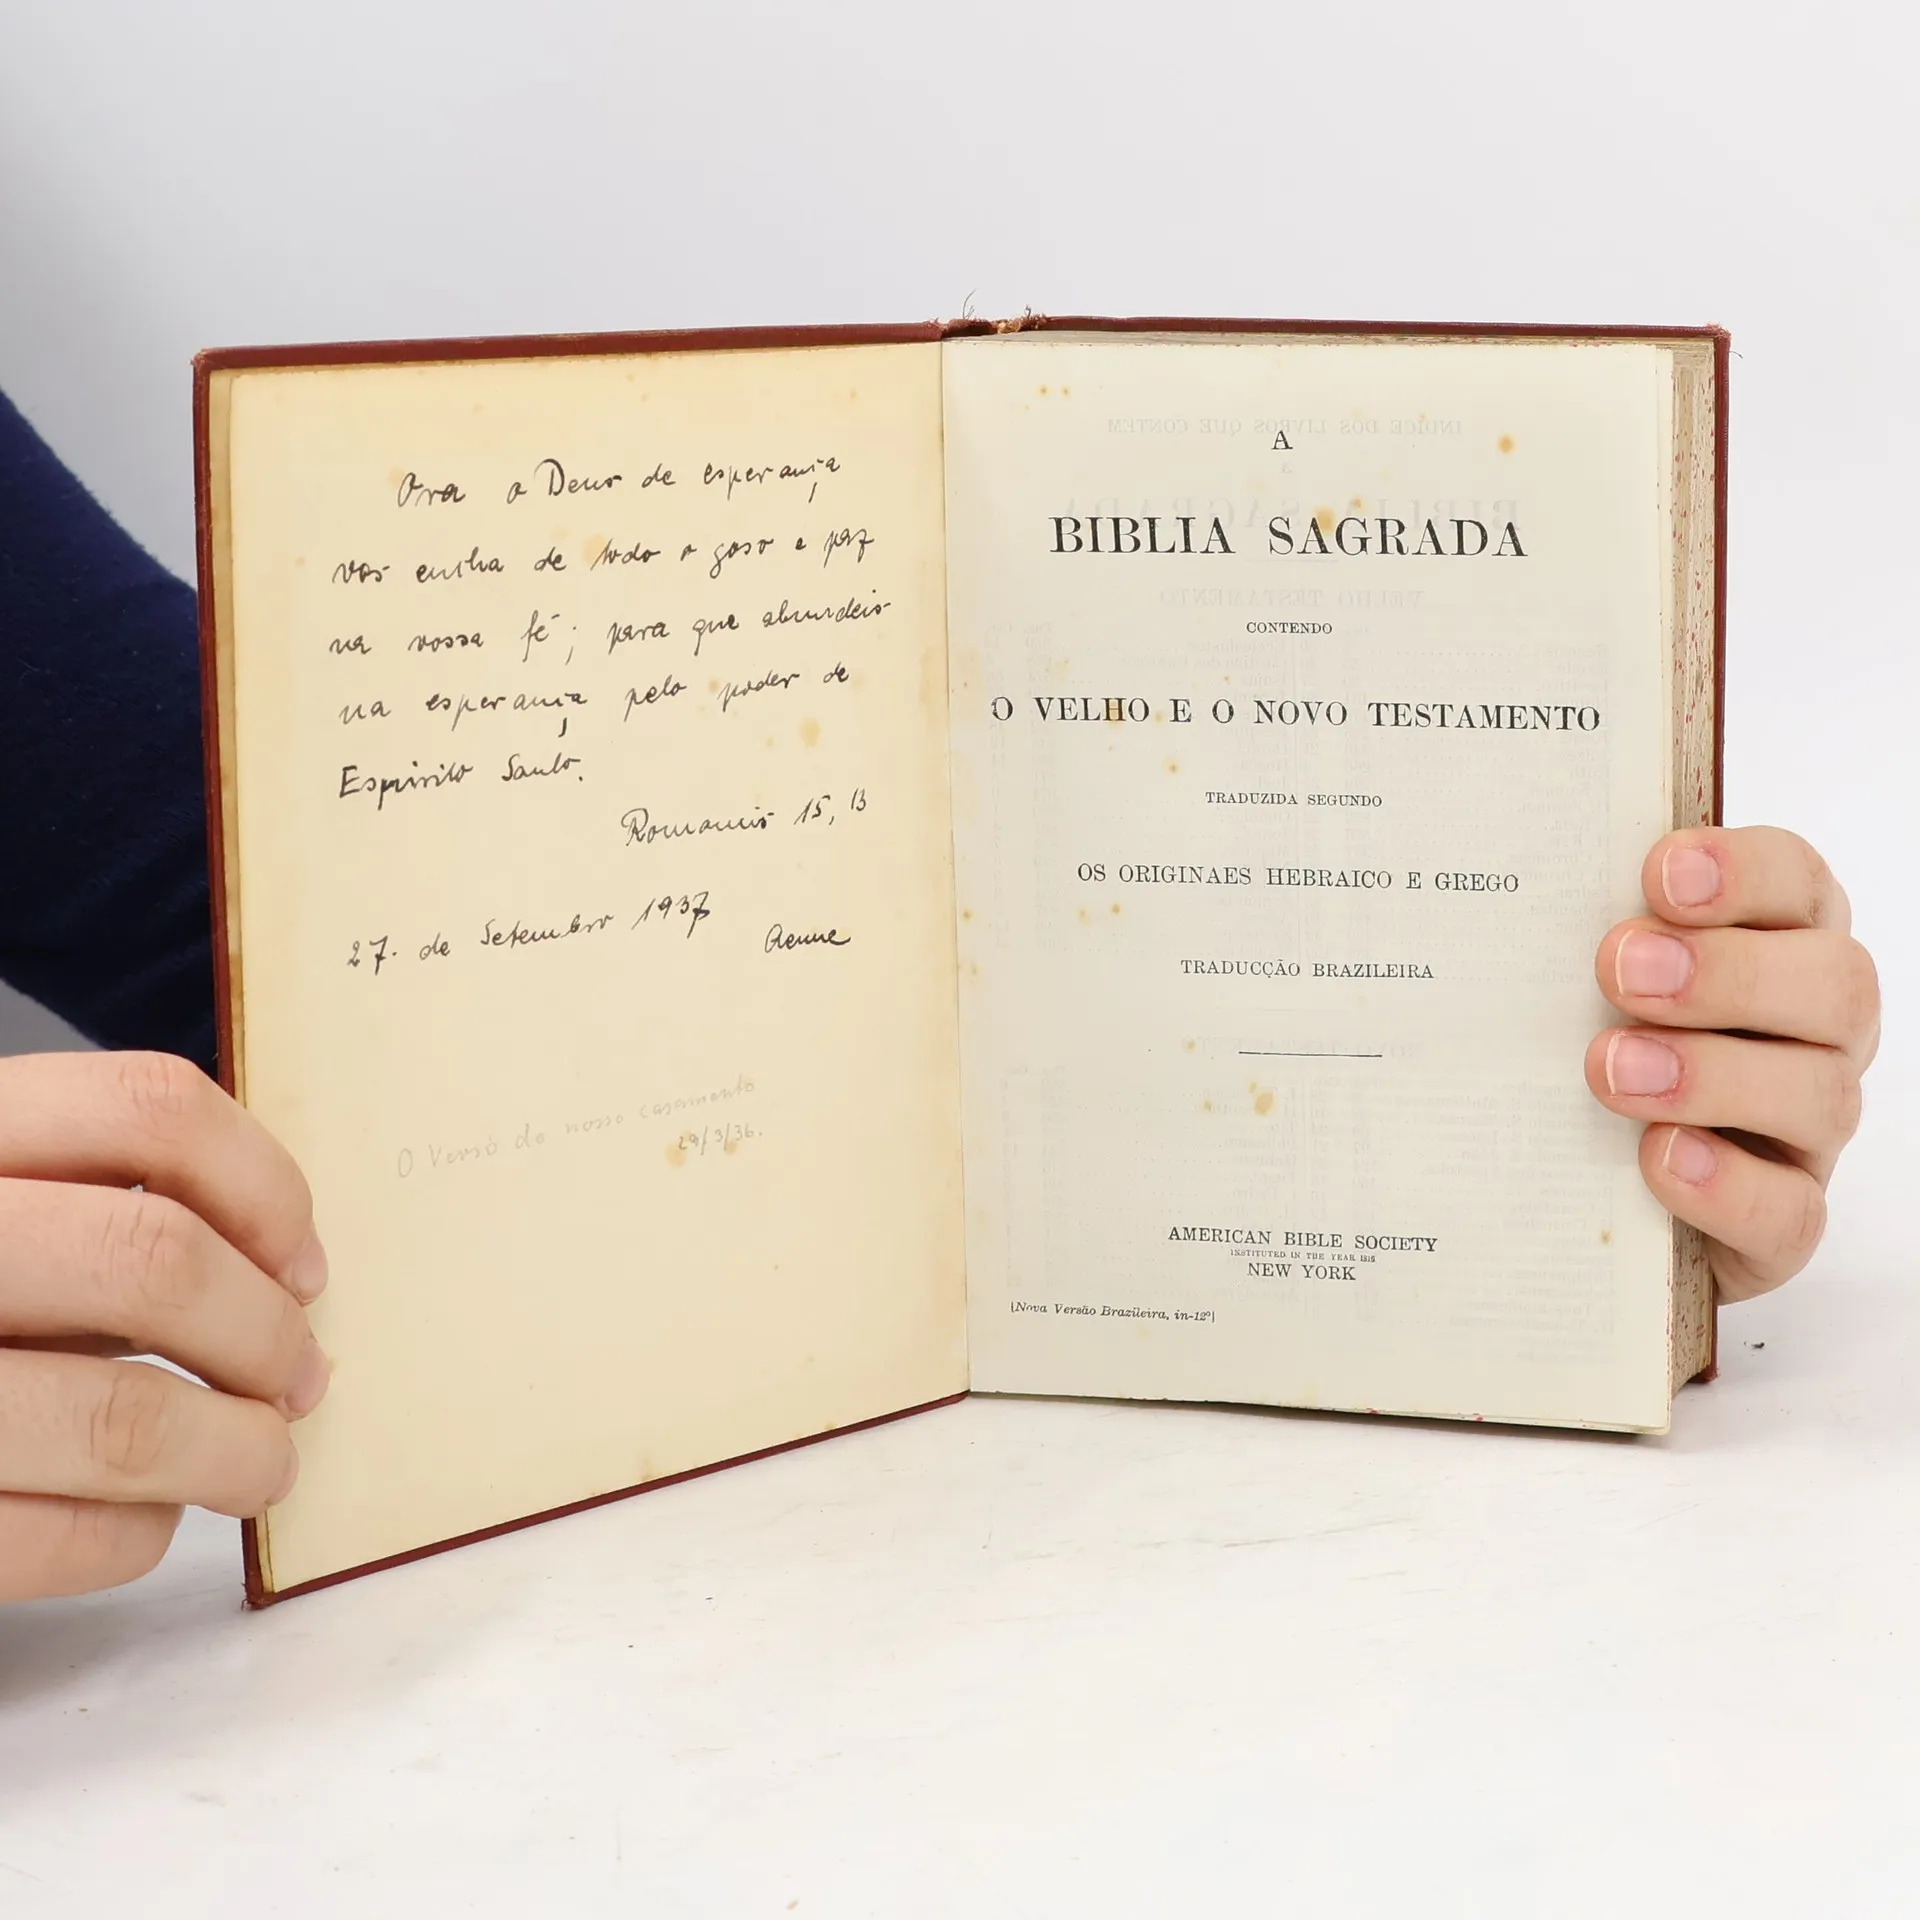 Ora o Deus de esperança
vos encha de todo o goso e paz
na vossa fé; para que abundeis
na esperança pelo poder de
Espirito Santo.
Romanos 15, 13
27. de Setembro 1937
Aenne
O Verso do nosso casamento
29/3/36.
A
BIBLIA SAGRADA
CONTENDO
O VELHO E O NOVO TESTAMENTO
TRADUZIDA SEGUNDO
OS ORIGINAES HEBRAICO E GREGO
TRADUCÇÃO BRAZILEIRA
AMERICAN BIBLE SOCIETY
INSTITUTED IN THE YEAR 1816
NEW YORK
[Nova Versão Brazileira, in-12º]
INDICE DOS LIVROS QUE CONTEM
A
BIBLIA SAGRADA
VELHO TESTAMENTO